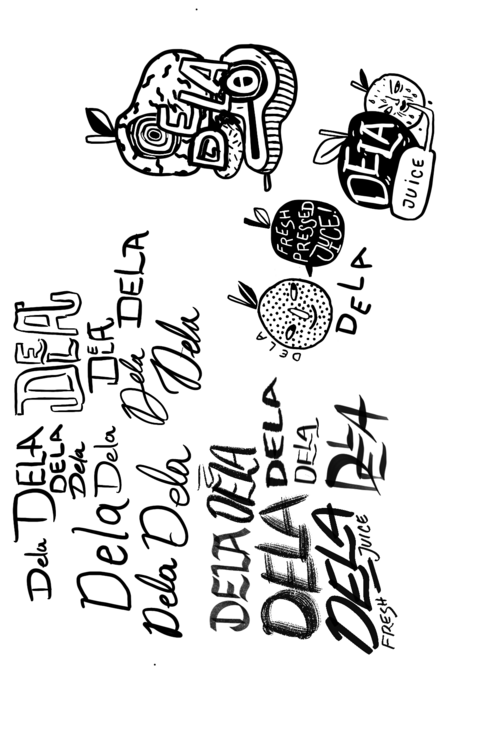 Dela
DELA
DELA
Dela
DELA
DELA
DELA
Dela
Dela
Dela
Dela
Dela
Dela
DELA
DELA
DELA
DELA
DELA
DELA
JUICE
FRESH
DELA
DELA
FRESH
PRESSED
JUICE!
DELA
DELA
DELA
JUICE